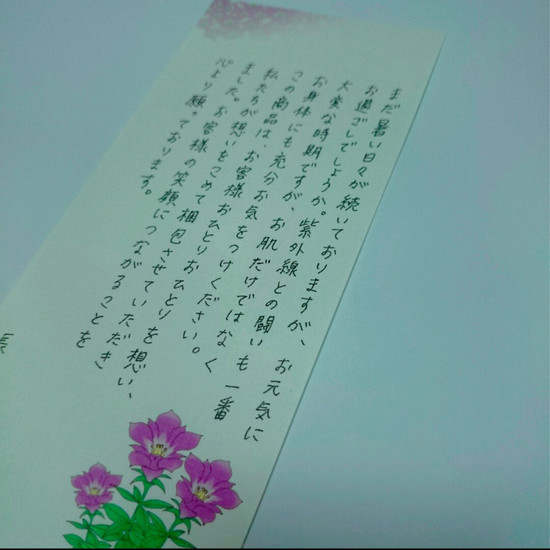 まだ暑い日々が続いておりますが、お元気に
お過ごしでしょうか。紫外線との闘いも一番
大変な時期ですが、お肌だけではなく
お身体にも充分お気をつけください。
この商品は、お客様おひとりおひとりを想い、
私たちが想いをこめて梱包させていただき
ました。お客様の笑顔につながることを
心より願っております。
長